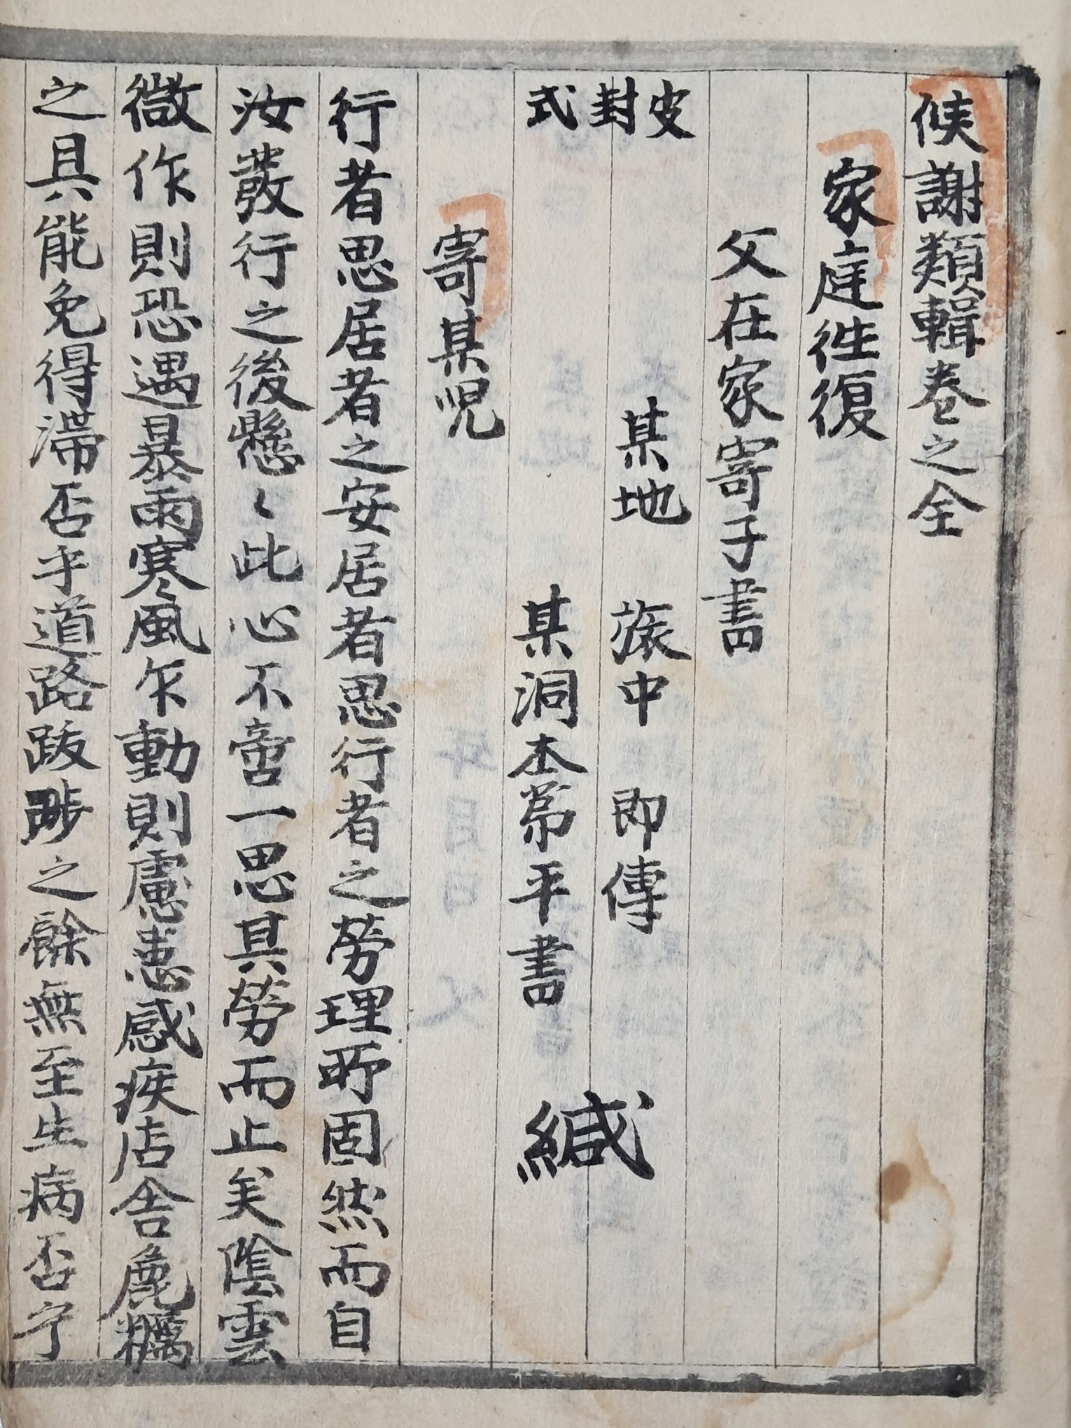 候謝類輯卷之全
家庭徃復
父在家寄子書
皮封式
某地 旅中 即傳
某洞本第平書 緘
寄某児
行者思居者之安居者思行者之勞理所固然而自
汝發行之後懸〻此心不啻一思其勞而止矣陰雲
微作則恐遇暴雨寒風乍動則慮恙感疾店舍麁糲
之具能免得滞否乎道路跋涉之餘無至生病否宁